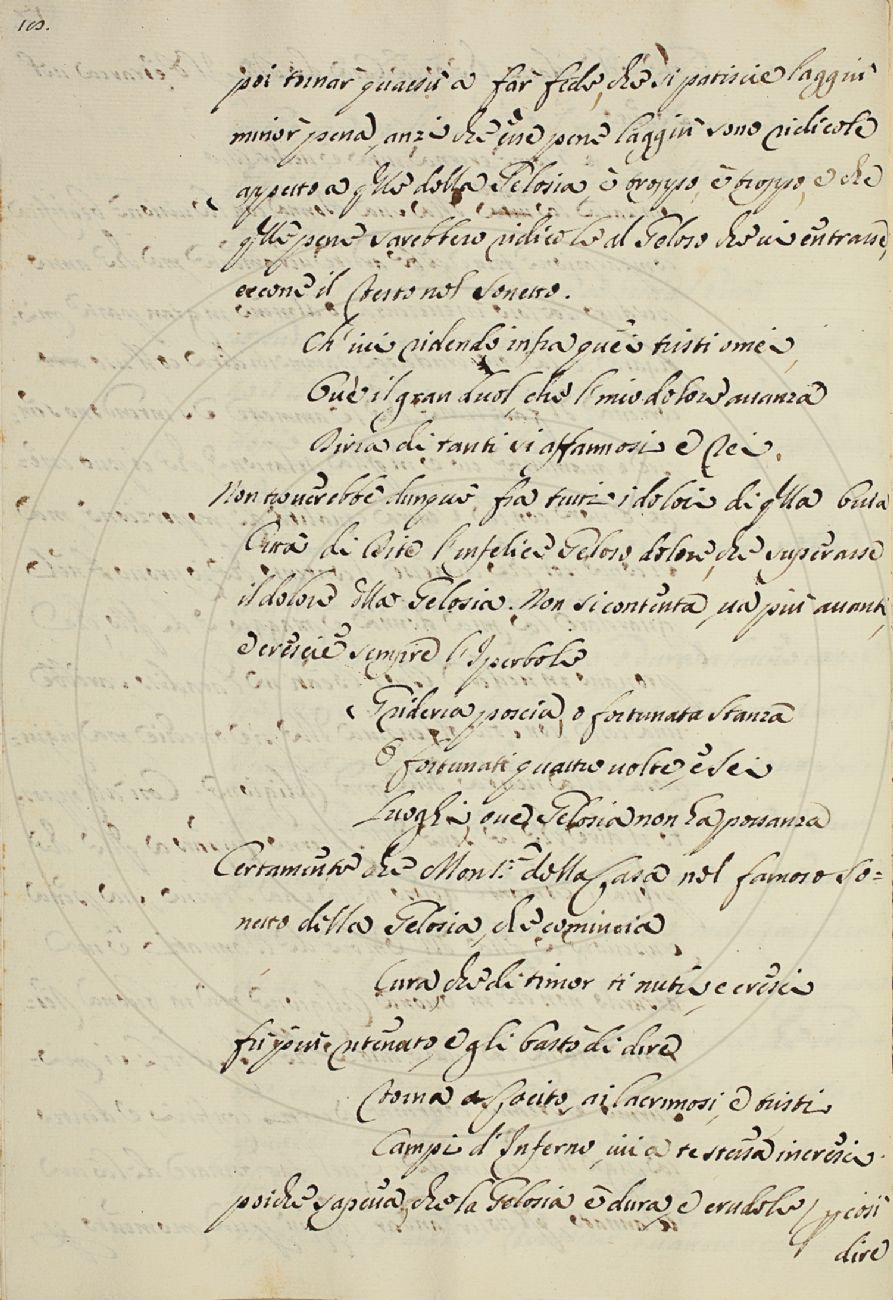 100.
poi tornar quassù a far fede, che si patiscie laggiù
minor pena, anzi che pene laggiù sono ridicole
appetto a qlle della Gelosia è troppo, è troppo, e che
qlle pene sarebbero ridicole al Geloso che vi entrasse,
eccone il testo nel sonetto.
Ch' ivi ridendo infra que' tristi omei,
Ov'è il gran duol, che 'l mio dolore avanza
Diria di tanti sì affannosi e rei.
Non troverebbe dunque fra tutti i dolori di qlla buia
Città di Dite l'infelice Geloso dolore, che superasse
il dolore della Gelosia. Non si contenta, và più avanti,
e crescie sempre l'Iperbole
Grideria poscia, o fortunata stanza
O fortunati quattro volte, e sei
Luoghi, ove Gelosia non ha possanza
Certamente che Mons.re della Casa nel famoso So=
netto della Gelosia, che comincia
Cura, che di timor ti nutri, e cresci
fù più ritenuto, e gli bastò di dire
torna a Cocito, ai lacrimosi, e tristi
Campi d'Inferno, ivi a te stessa incresci.
poiche sapeva, che la Gelosia è dura, e crudele, p così
dire